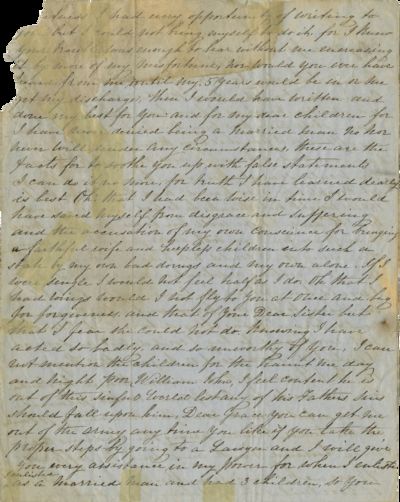 I had every opportunity of writing to
you but I could not bring myself to do it for I knew
your troubles enough to bear without me encreasing
it by more of my misfortunes, nor would you ever have
heard from me until my 5 years would be in or me
get my discharge, then I would have written and
done my best for you and for my dear children for
I have never denied being a Married man No nor
never will under any circumstances, these are the
facts for to soothe you up with false statements
I can do it no more, for truth I have learned dearly
is best Oh that I had been wise in time I would
have saved myself from disgrace and suffering
and the accusation of my own conscience for bringing
a faithful wife and helpless children into such a
state by my own bad doings and my own alone. If I
were single I would not feel half as I do. Oh that I
had wings would I not fly to you at once and beg
for forgiveness, and that of your Dear Sister but
that I fear she could not do knowing I have
acted so badly and so unworthy of you, I can
not mention the children for they haunt me day
and night Poor William John, I feel content he is
out of this sinful World lest any of his Fathers sins
should fall upon him, Dear Grace you can get me
out of the army any time you like if you take the
proper steps by going to a Lawyer and I will give
you every assistance in my power for when I enlisted
as a Married man and had 3 children, so you